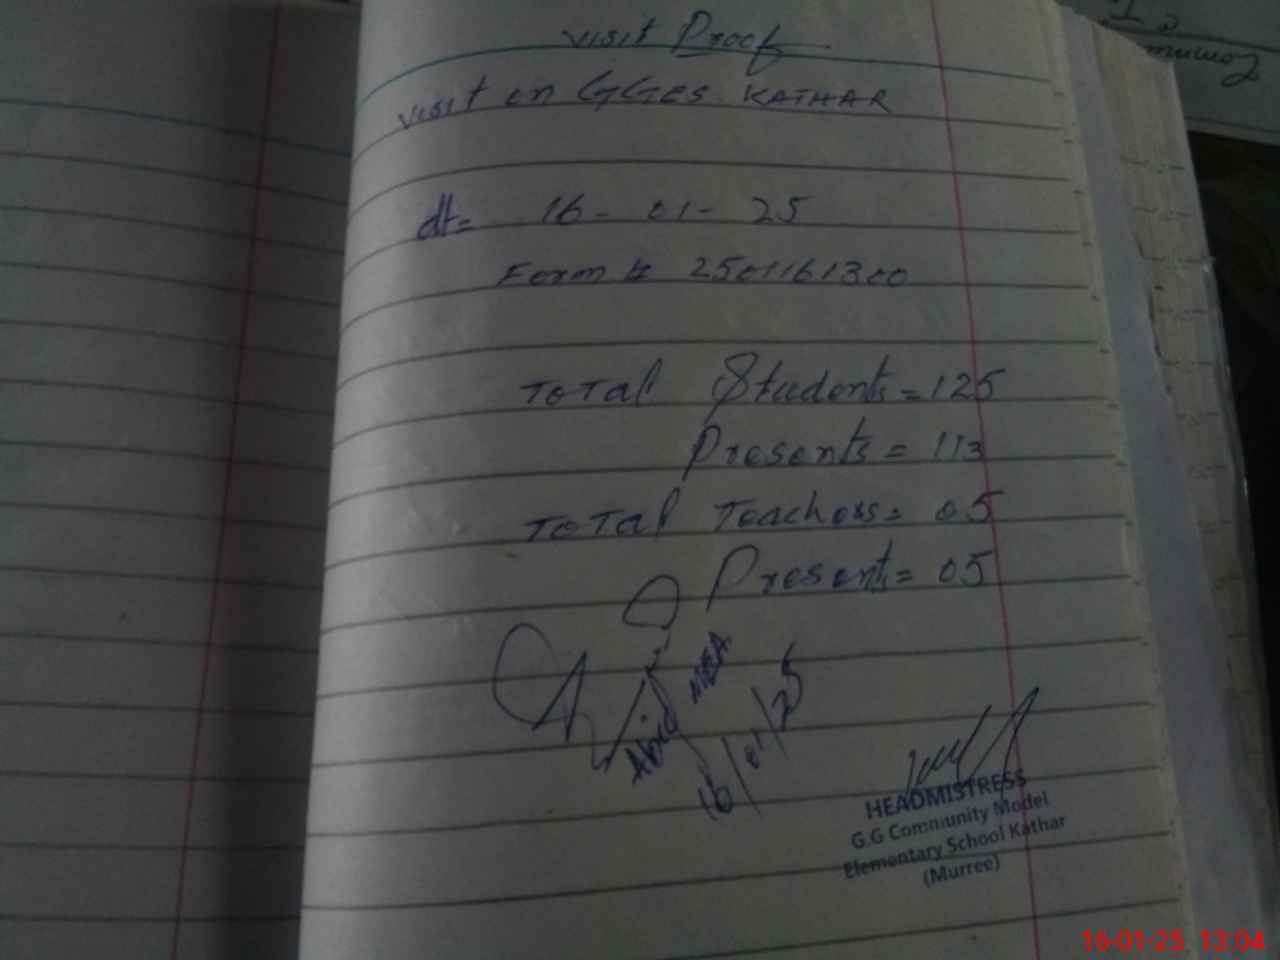 Visit Proof
Visit in GGES KATHAR
dt= 16-01-25
Form # 2501161300
Total Students = 125
Presents = 113
Total Teachers = 05
Presents = 05
Abid MEA
16/01/25
HEADMISTRESS
G.G Community Model
Elementary School Kathar
(Murree)
16-01-25 13:04